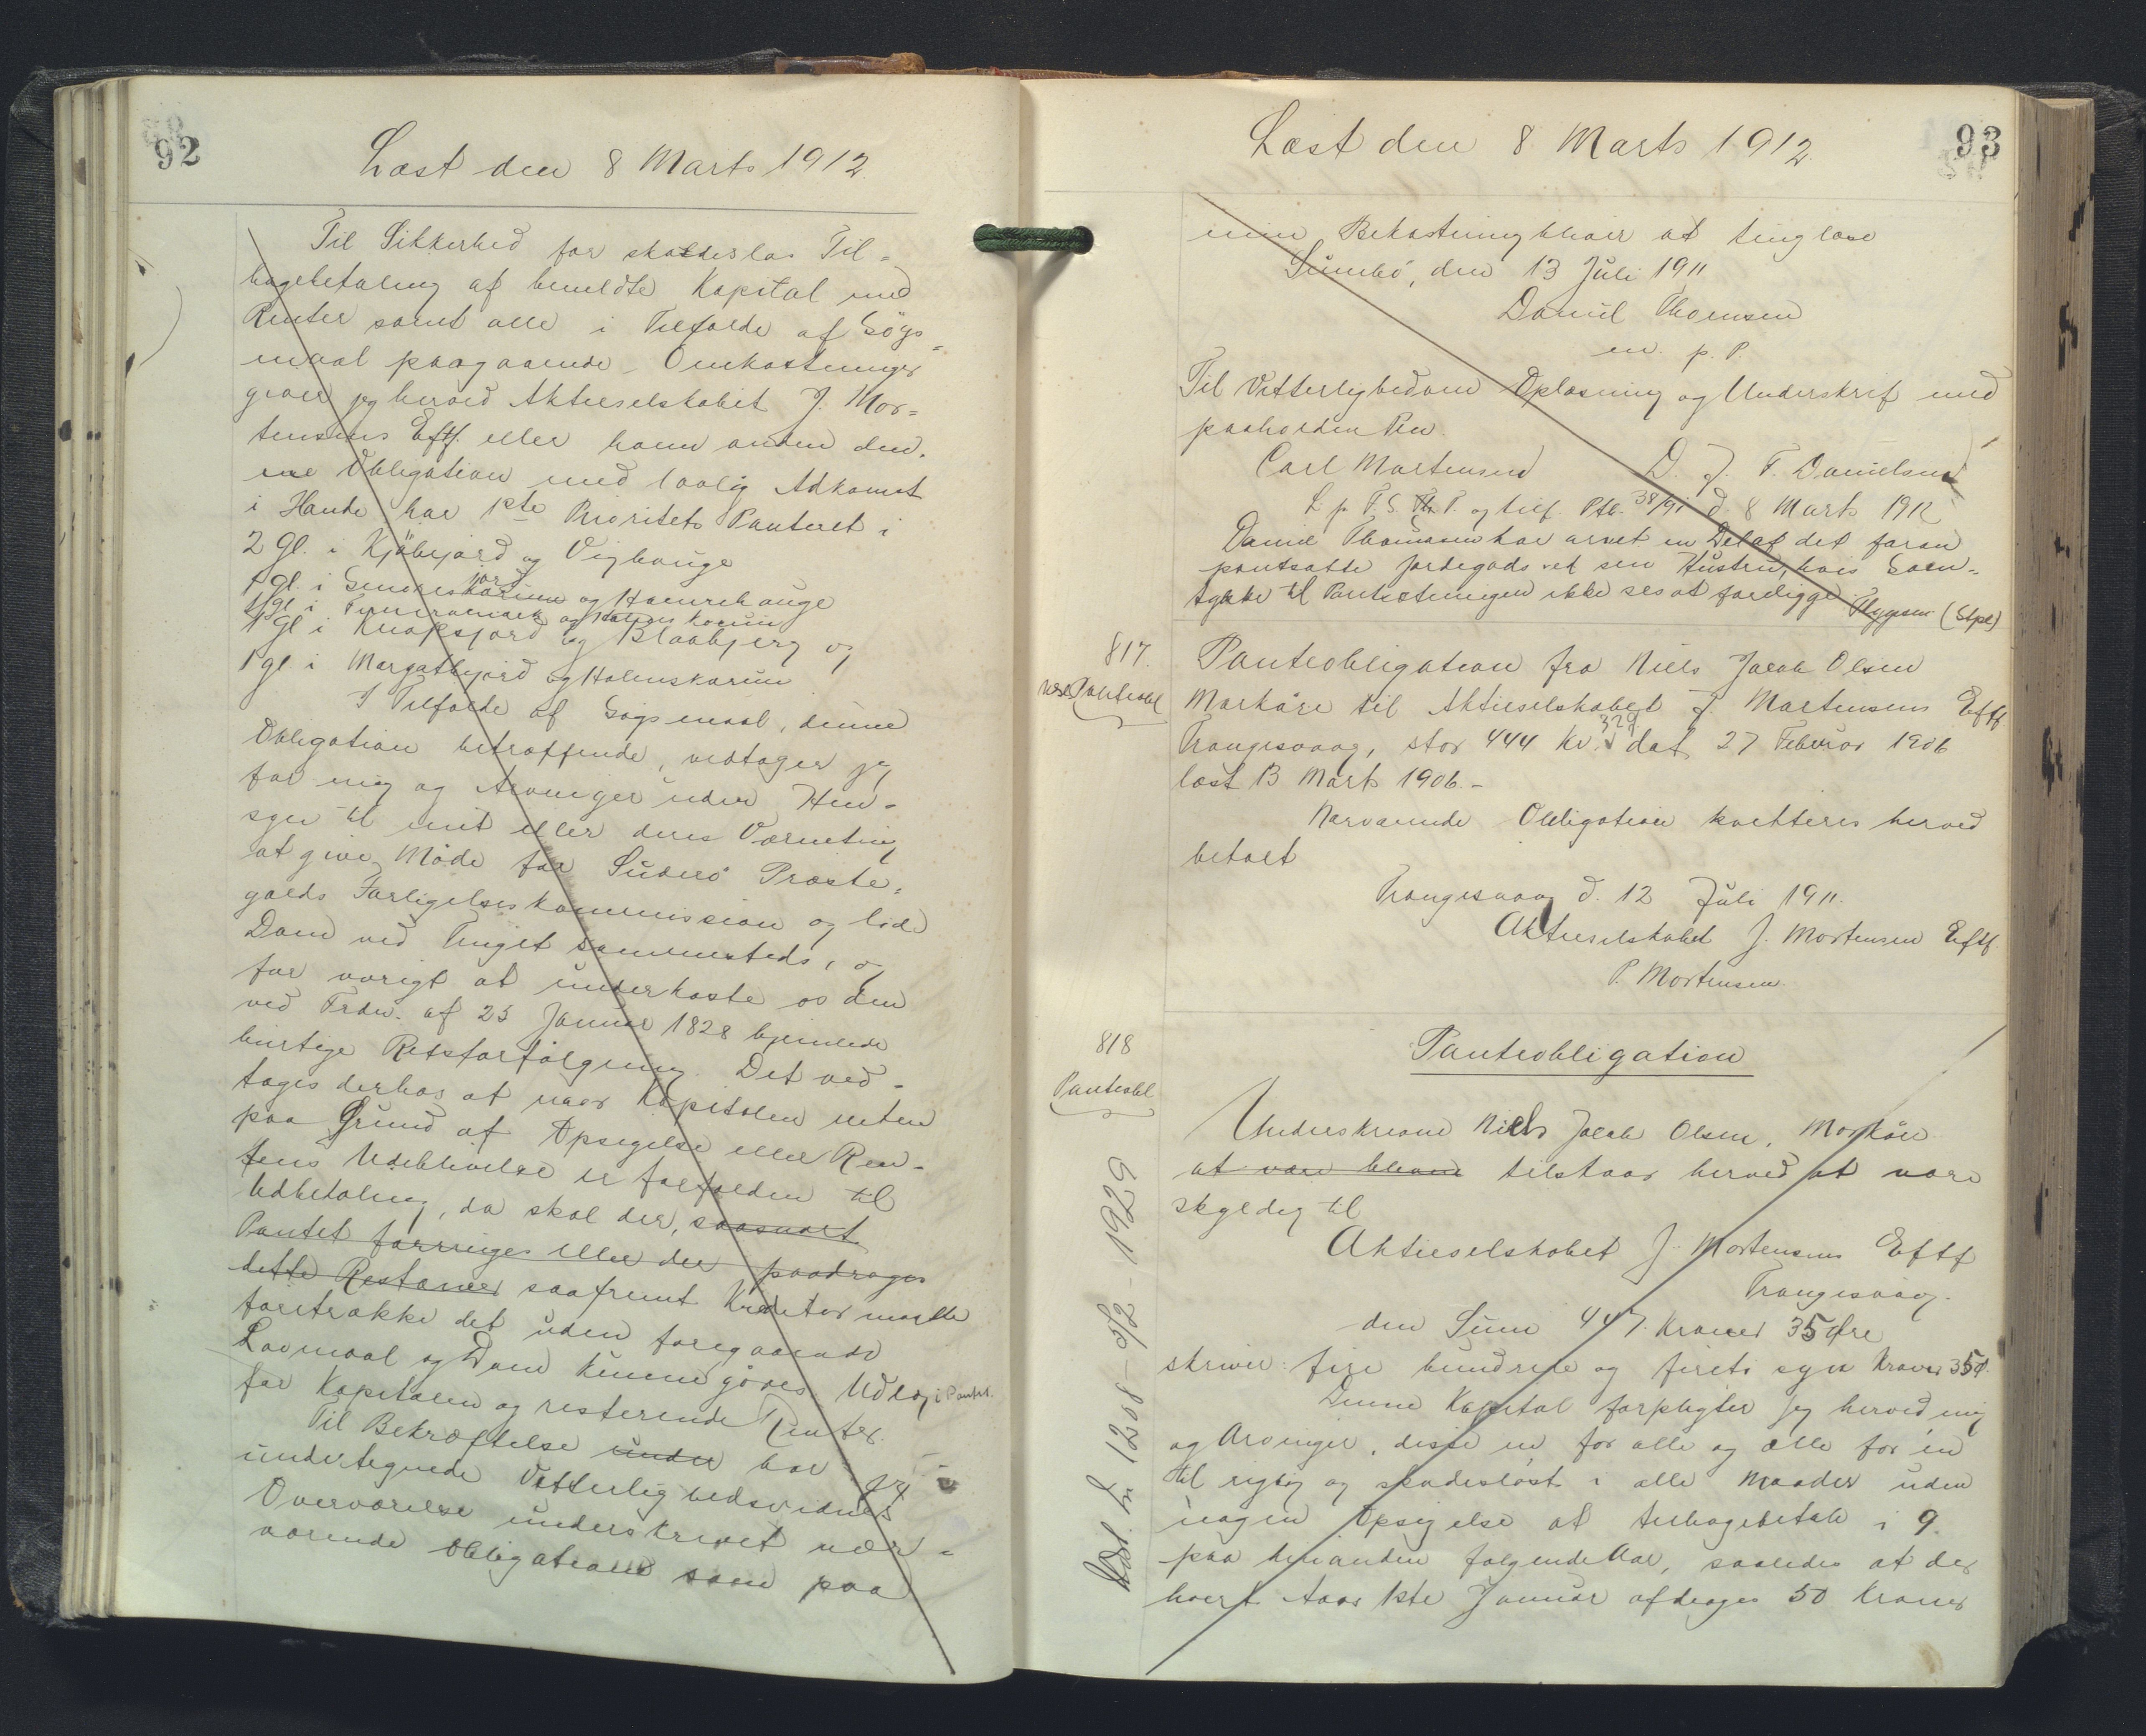 92
Læst den 8 Marts 1912.
Til Sikkerhed for skadesløs Til=
bagebetaling af bemeldte Kapital med
Renter samt alle i Tilfælde af Søgs=
maal paagaaende Omkostninger
giver jeg herved Aktieselskabet J. Mor=
tensens Eftf. eller hvem anden den=
ne Obligation med lovlig Adkomst
i Hænde har 1ste Prioritets Panteret i
2 Gl. i Kjøbejord og Vighauge
1 gl. i
jord
og Hamrehauge
1 gl i Knapsjord og Blaabjerg og
1 gl i Margathejord og Holmskorum
I Tilfælde af Søgsmaal, denne
Obligation betræffende, vedtager jeg
for mig og Arvinger uden Hen=
syn til mit eller deres Værneting
at give Møde for Suderø Præste=
gælds Forligelseskommission og lide
Dom ved Tinget sammesteds, og
for øvrigt at underkaste os den
ved Frdn. af 25 Januar 1828 hjemlede
hurtige Retsforfølgning. Det ved=
tages derhos at naar Kapitalen enten
paa Grund af Opsigelse eller Ren=
tens Udeblivelse er forfalden til
Udbetaling, da skal der, saasnart
Pantet forringes eller der paadrages
dette Restancer saafremt Kreditor maatte
foretrække det uden foregaaende
Lovmaal og Dom kunne gøres Udlæg i Pantet
for Kapitalen og resterende Renter.
Til Bekræftelse under har jeg
undertegnede Vitterlighedsvidners
Overværelse underskrevet nær=
værende Obligation som paa
93
Læst den 8 Marts 1912.
min Bekostning bliver at tinglæse
Sumbø, den 13 Juli 1911
Daniel Thomsen
m. p. P.
Til Vitterlighed om Oplæsning og Underskrif med
paaholden Pen.
Carl Mortensen D. J. F. Danielsen
L p. F. S. Th. P. og tilf. Ptb. 38/91 d. 8 Marts 1912
Daniel Thomsen har arvet en Del af det foran
pantsatte Jordegods ved sin Hustru, hvis Sam=
tykke til Pantsætningen ikke ses at foreligge. (Stpl)
817.
Panteobl
Panteobligation fra Niels Jacob Olsen
Morkøre til Aktieselskabet J. Mortensens Eftf
Trangisvaag, stor 444 Kr. 329 dat. 27 Februar 1906
læst 13 Marts 1906.-
Nærværende Obligation kvitteres herved
betalt
Trangisvaag d. 12 Juli 1911.
Aktieselskabet J. Mortensen Eftf.
P. Mortensen.
818
Panteobl
Panteobligation
Underskrevne Niels Jacob Olsen, Morkøre
at være bleven tilstaar herved at være
skyldig til
Aktieselskabet J. Mortensens Eftf
Trangisvaag.
den Sum 447 Kroner 35 Øre
skriver: fire hundrede og fireti syv Kroner 35 Ø.
Denne Kapital forpligter jeg herved mig
og Arvinger, disse en for alle og alle for en
til rigtig og skadesløst i alle Maader uden
nogen Opsigelse at tilbagebetale i 9
paa hinanden følgende Aar, saaledes at der
hvert Aar 1ste Januar afdrages 50 Kroner
Udsl. Ln 1208 - 5/2 - 1929